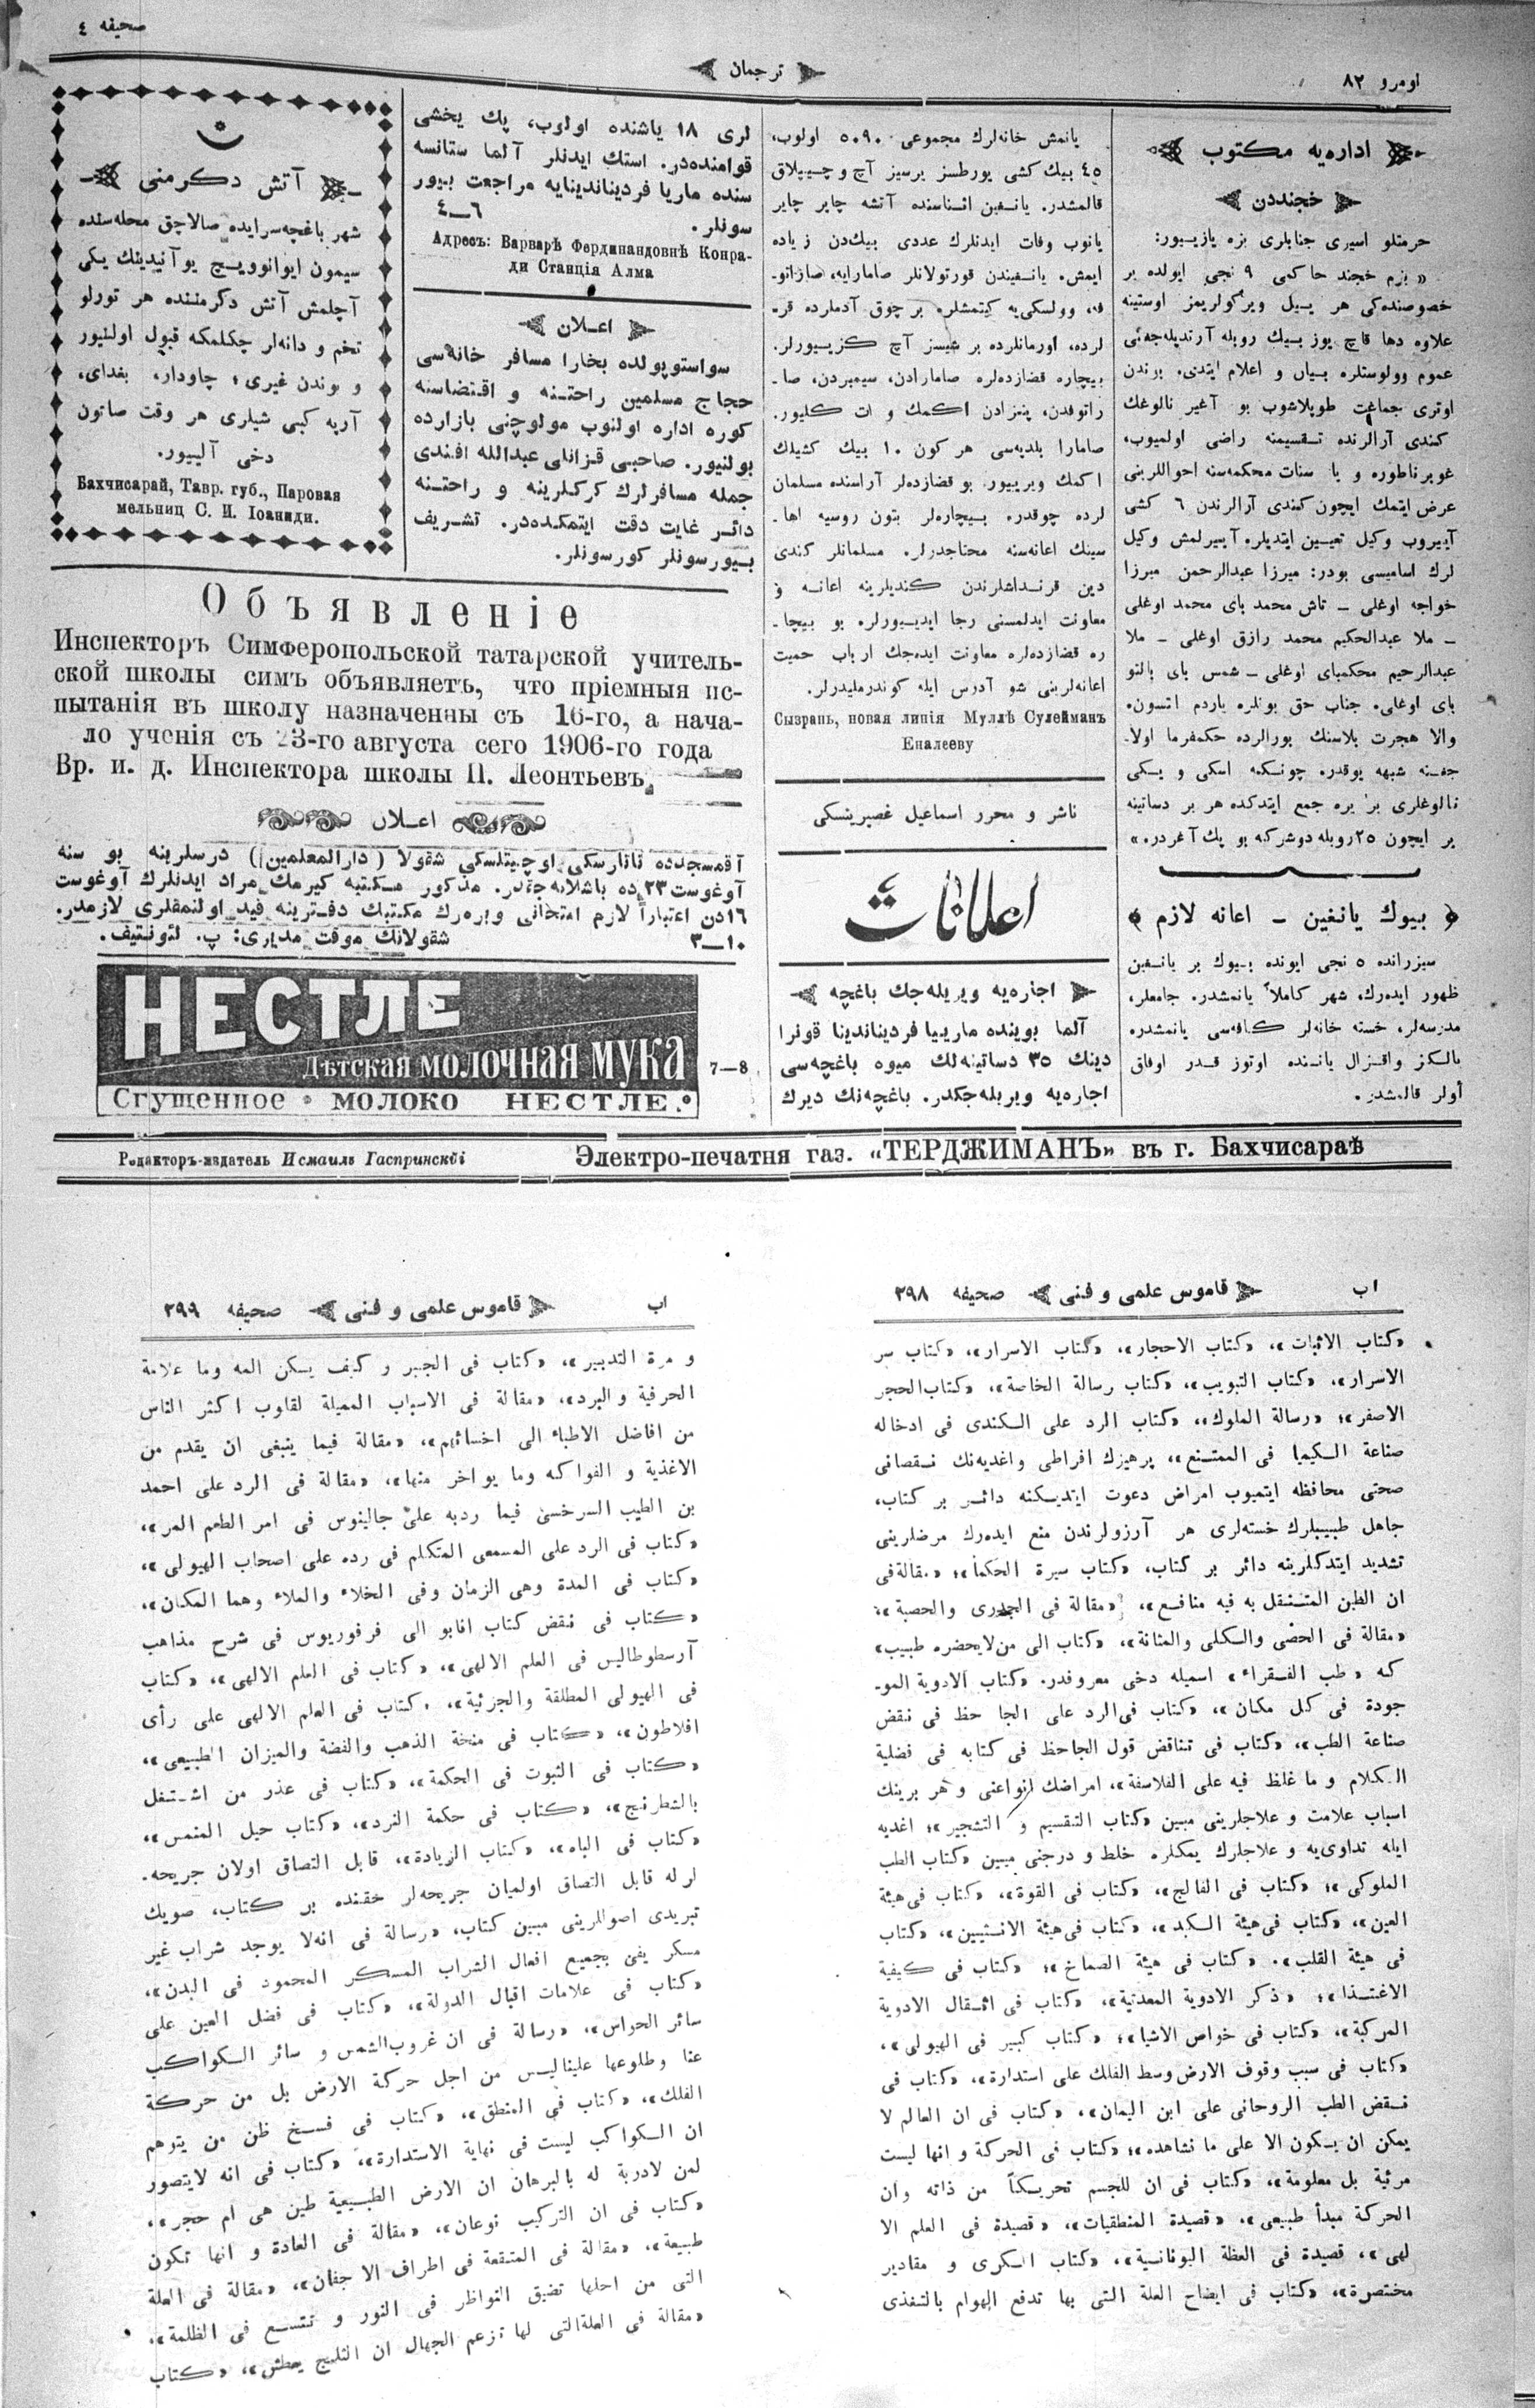 نومرو ٨٢
ترجمان
صحیفه ٤
اداره‌یه مکتوب
خجنددن
حرمتلو اسیری جنابلری بزه یازیبور:
« بزم خجند حاکمی ٩ نجی ایولده بر
خصوصنده‌کی هر ییل ویرکولریمز اوستینه
علاوه دها قاچ یوز بیك روبله آرتدیله‌جه‌ئی
عموم وولوستلره بیان و اعلام ایتدی. بوندن
اوتری جماعت طوپلاشوب بو آغیر نالوغك
کندی آرالرنده تقسیمنه راضی اولمیوب،
غوبرناطوره و یا سنات محکمه‌سنه احواللرینی
عرض ایتمك ایچون کندی آرالرندن ٦ کشی
آییروب وکیل تعیین ایتدیلر. آییرلمش وکیل
لرك اسامیسی بودر: میرزا عبدالرحمن میرزا
خواجه اوغلی – تاش محمد بای محمد اوغلی
– ملا عبدالحکیم محمد رازق اوغلی – ملا
عبدالرحیم محکمبای اوغلی – شمس بای بالتو
بای اوغلی. جناب حق بونلره یاردم اتسون.
والا هجرت بلاسنك بورالرده حکمفرما اولا-
جغنه شبهه یوقدر. چونکه اسکی و یکی
نالوغلری بر یره جمع ایتدکده هر بر دساتینه
یر ایچون ٢٥ روبله دوشرکه بو پك آغردر. »
﴿ بیوك یانغین – اعانه لازم ﴾
سیزرانده ٥ نجی ایونده بیوك بر یانغین
ظهور ایده‌رك، شهر کاملاً یانمشدر. جامعلر،
مدرسه‌لر، خسته خانه‌لر کافه‌سی یانمشدر.
یالکز واغزال یاننده اوتوز قدر اوفاق
أولر قالمشدر.
یانمش خانه‌لرك مجموعی ٥٠٩٠ اولوب،
٤٥ بیك کشی یورطسز یرسیز آچ و چیپلاق
قالمشدر. یانغین اثناسنده آتشه چاپر چاپر
یانوب وفات ایدنلرك عددی بیك‌دن زیاده
ایمش. یانغیندن قورتولانلر صامارایه، صاراتو-
فه، وولسکی‌یه کیتمشلر. بر چوق آدملرده قر-
لرده، اورمانلرده بر شیسز آچ کزیبورلر.
بیچاره قضازده‌لره صامارادن، سیمبردن، صا-
راتوفدن، پنزادن اکمك و ات کلیور.
صامارا بلدیه‌سی هرکون ١٠ بیك کشیلك
اکمك ویرییور. بو قضازده‌لر آراسنده مسلمان
لرده چوقدر. بیچاره‌لر بتون روسیه اها-
سینك اعانه‌سنه محتاجدرلر. مسلمانلر کندی
دین قرنداشلرندن کندیلرینه اعانه و
معاونت ایدلمسنی رجا ایدیبورلر. بو بیچا-
ره قضازده‌لره معاونت ایده‌جك ارباب حمیت
اعانه‌لرینی شو آدرس ایله کوندرملیدرلر.
Сызрань, новая линія Муллѣ Сулейманъ
Еналееву
ناشر و محرر اسماعیل غصپرینسکی
اعلانات
اجاره‌یه ویریله‌جك باغچه
آلما بوینده مارییا فردیناندینا قونرا
دینك ٣٥ دساتینه‌لك میوه باغچه‌سی
اجاره‌یه ویریله‌جکدر. باغچه‌نك دیرك
لری ١٨ یاشنده اولوب، پك یخشی
قوامنده‌در. استك ایدنلر آلما ستانسه
سنده ماریا فردیناندینایه مراجعت بیور
سونلر. ٦—٤
Адресъ: Варварѣ Фердинандовнѣ Конра-
ди Станція Алма
اعلان
سواستوپولده بخارا مسافر خانه‌سی
حجاج مسلمین راحتنه و اقتضاسنه
کوره اداره اولنوب مولوچنی بازارده
بولنیور. صاحبی قزانلی عبدالله افندی
جمله مسافرلرك کرکلرینه و راحتنه
دائر غایت دقت ایتمکده‌در. تشریف
بیورسونلر کورسونلر.
آتش دکرمنی
شهر باغچه‌سرایده صالاچق محله‌سنده
سیمون ایوانوویچ یوآنیدینك یکی
آچلمش آتش دکرمننده هر تورلو
تخم و دانه‌لر چکلمکه قبول اولنیور
و بوندن غیری؛ چاودار، بغدای،
آرپه کبی شیلری هر وقت صاتون
دخی آلییور.
Бахчисарай, Тавр. губ., Паровая
мельниц С. И. Іоаниди.
Объявленіе
Инспекторъ Симферопольской татарской учитель-
ской школы симъ объявляетъ, что пріемныя ис-
пытанія въ школу назначенны съ 16-го, а нача-
ло ученія съ 23-го августа сего 1906-го года
Вр. и. д. Инспектора школы П. Леонтьевъ.
اعلان
آقمسجدده تاتارسکی اوچیتلسکی شقولا (دارالمعلمین) درسلرینه بو سنه
آوغوست ٢٣ ده باشلانه‌جقدر. مذکور مکتبه کیرمك مراد ایدنلرك آوغوست
١٦دن اعتباراً لازم امتحانی ویره‌رك مکتبك دفترینه قید اولنمقلری لازمدر.
شقولانك موقت مدیری: پ. لئونتیف. ١٠—٣
НЕСТЛЕ
Дѣтская МОЛОЧНАЯ МУКА
Сгущенное МОЛОКО НЕСТЛЕ.
7—8
Редакторъ-издатель Исмаилъ Гаспринскій
Электро-печатня газ. «ТЕРДЖИМАНЪ» въ г. Бахчисараѣ
اب
قاموس علمی و فنی
صحیفه ٣٩٨
«کتاب الاثبات»، «کتاب الاحجار»، «کتاب الاسرار»، «کتاب سر
الاسرار»، «کتاب التبویب»، «کتاب رسالة الخاصة»، «کتاب الحجر
الاصفر»؛ «رسالة الملوك»، «کتاب الرد علی الکندی فی ادخاله
صناعة الکیمیا فی الممتنع»، پرهیزك افراطی و اغدیه‌نك نقصانی
صحتی محافظه ایتمیوب امراض دعوت ایتدیکنه دائر بر کتاب،
جاهل طبیبلرك خسته‌لری هر آرزولرندن منع ایده‌رك مرضلرینی
تشدید ایتدکلرینه دائر بر کتاب، «کتاب سیرة الحکما»؛ «مقالة فی
ان الطین المتنقل به فیه منافع»، «مقالة فی الجدری والحصبة»،
«مقالة فی الحصی والکلی والمثانة»، «کتاب الی من لا یحضره طبیب»
که «طب الفقراء» اسمیله دخی معروفدر. «کتاب الادویة المو-
جودة فی کل مکان»، «کتاب فی الرد علی الجا حظ فی نقض
صناعة الطب»، «کتاب فی تناقض قول الجاحظ فی کتابه فی فضلیة
الکلام و ما غلظ فیه علی الفلاسفة»، امراضك انواعنی و هر برینك
اسباب علامت و علاجلرینی مبین «کتاب التقسیم و التشجیر»؛ اغدیه
ایله تداوی‌یه و علاجلرك یمکلره خلط و درجنی مبین «کتاب الطب
الملوکی»؛ «کتاب فی الفالج»، «کتاب فی القوة»، «کتاب فی هیئة
العین»، «کتاب فی هیئة الکبد»، «کتاب فی هیئة الانثیین»، «کتاب
فی هیئة القلب». «کتاب فی هیئة الصماخ»؛ «کتاب فی کیفیة
الاغتذا»؛ «ذکر الادویة المعدنیة»، «کتاب فی اثقال الادویة
المرکبة»، «کتاب فی خواص الاشیا»؛ «کتاب کبیر فی الهیولی»،
«کتاب فی سبب وقوف الارض وسط الفلك علی استدارة»، «کتاب فی
نقض الطب الروحانی علی ابن الیمان»، «کتاب فی ان العالم لا
یمکن ان یکون الا علی ما نشاهده»؛ «کتاب فی الحرکة و انها لیست
مرئیة بل معلومة»، «کتاب فی ان للجسم تحریکاً من ذاته وان
الحرکة مبدأ طبیعی»، «قصیدة المنطقیات»، «قصیدة فی العلم الا
لهی»، قصیدة فی العظة الیونانسیة»، «کتاب السکری و مقادیر
مختصرة»، «کتاب فی ایضاح العلة التی بها تدفع الهوام بالتغذی
اب
قاموس علمی و فنی
صحیفه ٣٩٩
و مرة التدبیر»، «کتاب فی الجبر و کیف یسکن المه وما علامة
الحرفیة و البرد»، «مقالة فی الاسباب الممیلة لقلوب اکثر الناس
من افاضل الاطباء الی اخسائهم»، «مقالة فیما ینبغی ان یقدم من
الاغذیة و الفواکه وما یواخر منها»، «مقالة فی الرد علی احمد
بن الطیب السرخسی فیما ردبه علی جالینوس فی امر الطعم المر»،
«کتاب فی الرد علی المسمعی المتکلم فی رده علی اصحاب الهیولی»،
«کتاب فی المدة وهی الزمان وفی الخلاء والملاء وهما المکان»،
«کتاب فی نقض کتاب افابو الی فرفوریوس فی شرح مذاهب
آرسطوطالیس فی العلم الالهی»، «کتاب فی العلم الالهی»، «کتاب
فی الهیولی المطلقة والجزئیة»، «کتاب فی العلم الالهی علی رأی
افلاطون»، «کتاب فی منخة الذهب والفضة والمیزان الطبیعی»،
«کتاب فی الثبوت فی الحکمة»، «کتاب فی عذر من اشتغل
بالشطرنج»، «کتاب فی حکمة النرد»، «کتاب حیل المنمس»،
«کتاب فی الباه»، «کتاب الزیادة»، قابل التصاق اولان جریحه-
لرله قابل التصاق اولمیان جریحه‌لر حقنده بر کتاب، صویك
تبریدی اصوللرینی مبین کتاب، «رسالة فی انه‌لا یوجد شراب غیر
مسکر یفی بجمیع افعال الشراب المسکر المحمود فی البدن»،
«کتاب فی علامات اقبال الدولة»، «کتاب فی فضل العین علی
سائر الحواس»، «رسالة فی ان غروب الشمس و سائر الکواکب
عنا وطلوعها علینا لیس من اجل حرکة الارض بل من حرکة
الفلك»، «کتاب فی المنطق»، «کتاب فی فسخ ظن من یتوهم
ان الکواکب لیست فی نهایة الاستدارة»، «کتاب فی انه لا یتصور
لمن لا دربة له بالبرهان ان الارض الطبیعیة طین هی ام حجر»،
«کتاب فی ان الترکیب نوعان»، «مقالة فی العادة و انها تکون
طبیعة»، «مقالة فی المنقعة فی اطراف الا جفان»، «مقالة فی العلة
التی من اجلها تضیق النواظر فی النور و تتسع فی الظلمة»،
«مقالة فی العلة التی لها تزعم الجهال ان الثلیج یعطش»، «کتاب